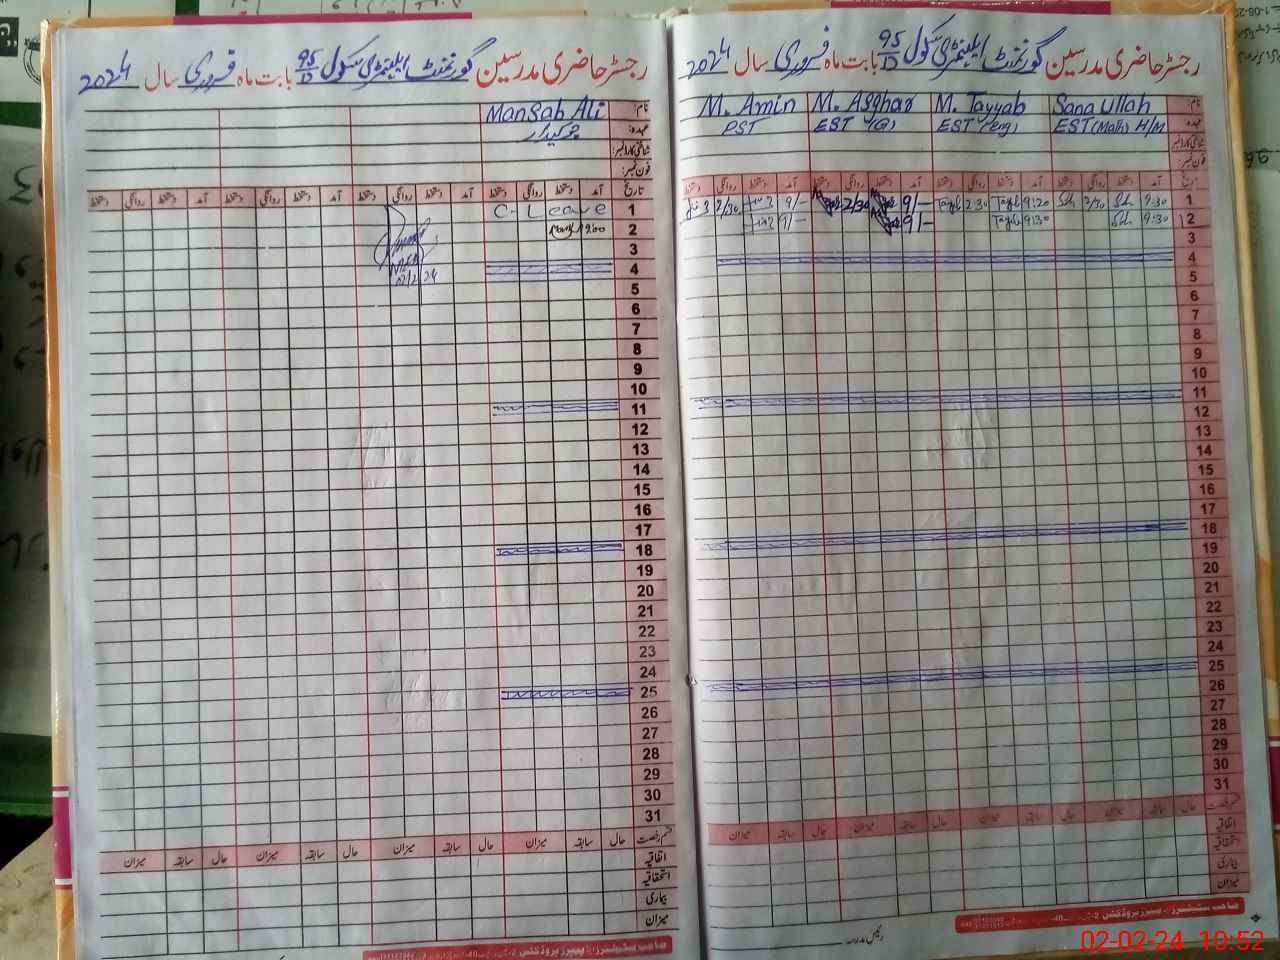 رجسٹر حاضری مدرسین گورنمنٹ ایلیمنٹری سکول 95/D بابت ماہ فروری سال 2024
نام: Sana Ullah M. Tayyab M. Asghar M. Amin
عہدہ: EST (Math) H/M EST (eng) EST (G) PST
شناختی کارڈ نمبر:
فون نمبر:
تاریخ آمد دستخط روانگی دستخط آمد دستخط روانگی دستخط آمد دستخط روانگی دستخط آمد دستخط روانگی دستخط
1 9:30 2/30 9:20 2:30 9/- 2/30 9/- 2/30
2 9:30 9:30 9/- 9/-
3
4
5
6
7
8
9
10
11
12
13
14
15
16
17
18
19
20
21
22
23
24
25
26
27
28
29
30
31
قسم رخصت حال سابقہ میزان حال سابقہ میزان حال سابقہ میزان حال سابقہ میزان
اتفاقیہ
استحقاقیہ
بیماری
میزان
رئیس مدرسہ
رجسٹر حاضری مدرسین گورنمنٹ ایلیمنٹری سکول 95/D بابت ماہ فروری سال 2024
نام: Mansab Ali
عہدہ: چوکیدار
شناختی کارڈ نمبر:
فون نمبر:
تاریخ آمد دستخط روانگی دستخط آمد دستخط روانگی دستخط آمد دستخط روانگی دستخط آمد دستخط روانگی دستخط
1 C-Leave
2
3
4
5
6
7
8
9
10
11
12
13
14
15
16
17
18
19
20
21
22
23
24
25
26
27
28
29
30
31
قسم رخصت حال سابقہ میزان حال سابقہ میزان حال سابقہ میزان حال سابقہ میزان
اتفاقیہ
استحقاقیہ
بیماری
میزان
02-02-24 10:52